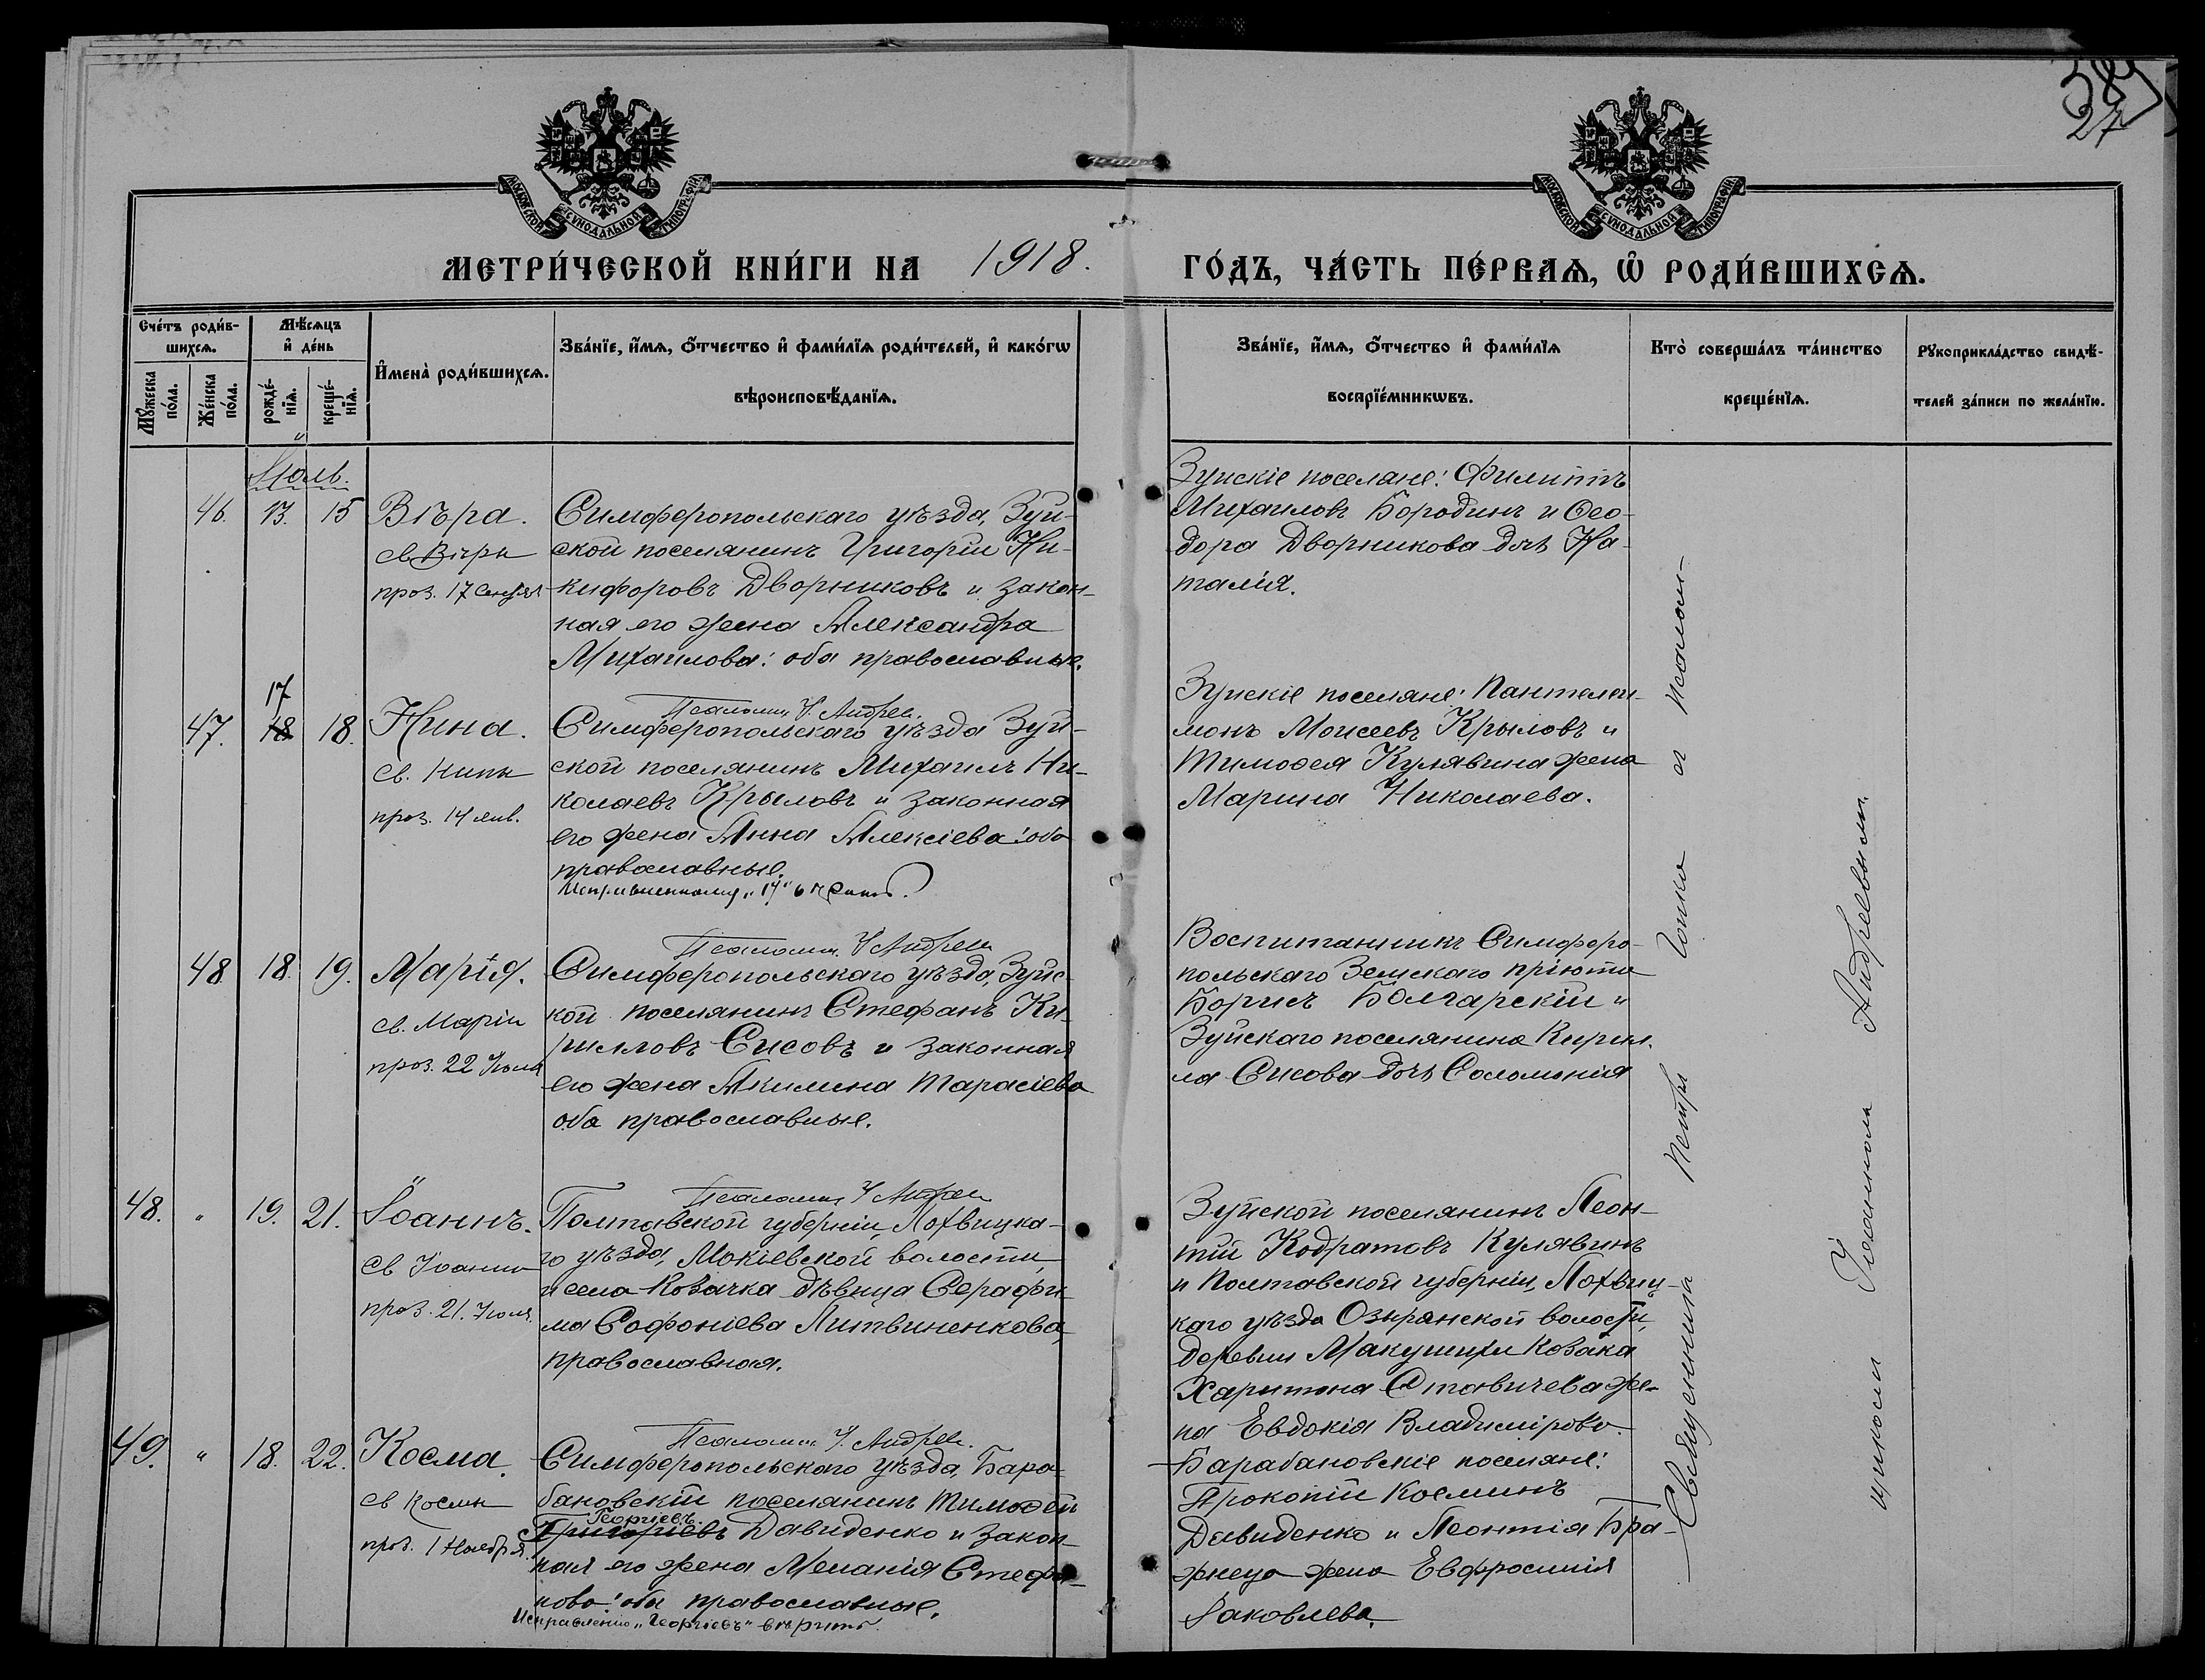 389
27
МОСКОВСКОЙ СѴНОДАЛЬНОЙ ТИПОГРАФІИ
МОСКОВСКОЙ СѴНОДАЛЬНОЙ ТИПОГРАФІИ
МЕТРИ́ЧЕСКОЙ КНИ́ГИ НА 1918.
ГО́ДЪ, ЧА́СТЬ ПЕ́РВАѦ, Ѡ҆ РОДИ́ВШИХСѦ.
Сче́тъ роди́вшихсѧ.
Мꙋ́жеска по́ла.
Же́нска по́ла.
Мѣ́сѧцъ и҆ де́нь
рожде́нїѧ.
креще́нїѧ.
И҆мена̀ роди́вшихсѧ.
Зва́нїе, и҆́мѧ, о҆́тчество и҆ фами́лїѧ роди́телей, и҆ како́гѡ
вѣроисповѣ́данїѧ.
Зва́нїе, и҆́мѧ, о҆́тчество и҆ фами́лїѧ
воспрїе́мникѡвъ.
Кто̀ соверша́лъ та́инство
креще́нїѧ.
Рꙋкоприкла́дство свидѣ́-
телей за́писи по жела́нїю.
Іюль.
46. 13. 15 Вѣра.
св Вѣры
проз. 17 Сентября
Симферопольскаго уѣзда, Зуй-
ской поселянинъ Григорій Ни-
кифоровъ Дворниковъ и закон-
ная его жена Александра
Михаилова: оба православные.
Зуйскіе поселяне: Филиппъ
Михаиловъ Бородинъ и Ѳео-
дора Дворникова дочь На-
талія.
Псаломщ. І. Андреев
17
47. 18 18. Нина.
св. Нины
проз. 14 янв.
Симферопольскаго уѣзда Зуй-
ской поселянинъ Михаилъ Ни-
колаевъ Крыловъ и законная
его жена Анна Алексіева: оба
православные.
Исправленному „17" вѣрить.
Зуйскіе поселяне: Пантелеи-
монъ Моисеевъ Крыловъ и
Тимоѳея Кулявина жена
Марина Николаева.
Псаломщ. І. Андреев
48 18. 19. Марія.
св. Маріи
проз. 22 Іюля
Симферопольскаго уѣзда, Зуйс-
кой поселянинъ Стефанъ Ки-
рилловъ Сисовъ и законная
его жена Акилина Тарасіева
оба православные.
Воспитанникъ Симферо-
польскаго Земскаго пріюта
Борисъ Болгарскій и
Зуйскаго поселянина Кирил-
ла Сисова дочь Соломонія
Псаломщ. І. Андреев
48. " 19. 21. Іоаннъ.
св Іоанна
проз. 21. Іюля.
Полтавской губерніи, Лохвицка-
го уѣзда, Мокіевской волости
и села Козачка дѣвица Серафи-
ма Софоніева Литвиненкова,
православная.
Зуйской поселянинъ Леон-
тій Кодратовъ Кулявинъ
и Полтавской губерніи, Лохвиц-
каго уѣзда Озырянской волости,
деревни Макушихи козака
Харитона Ставичева же-
на Евдокія Владимірова.
Псаломщ. І. Андреев.
49. " 18. 22. Косма.
св Космы
проз. 1 Ноября.
Симферопольскаго уѣзда, Бара-
бановскій поселянинъ Тимоѳей
Георгіевъ.
Григоріевъ Давиденко и закон-
ная его жена Меланія Стефа-
нова: оба православные.
Исправленію „Георгіевъ" вѣрить.
Барабановскіе поселяне:
Прокопій Косминъ
Давиденко и Леонтія Бра-
жнеца жена Евфросинія
Іаковлева.
Священникъ Петръ Гопко съ псалом-
щикомъ Іоанномъ Андреевымъ.